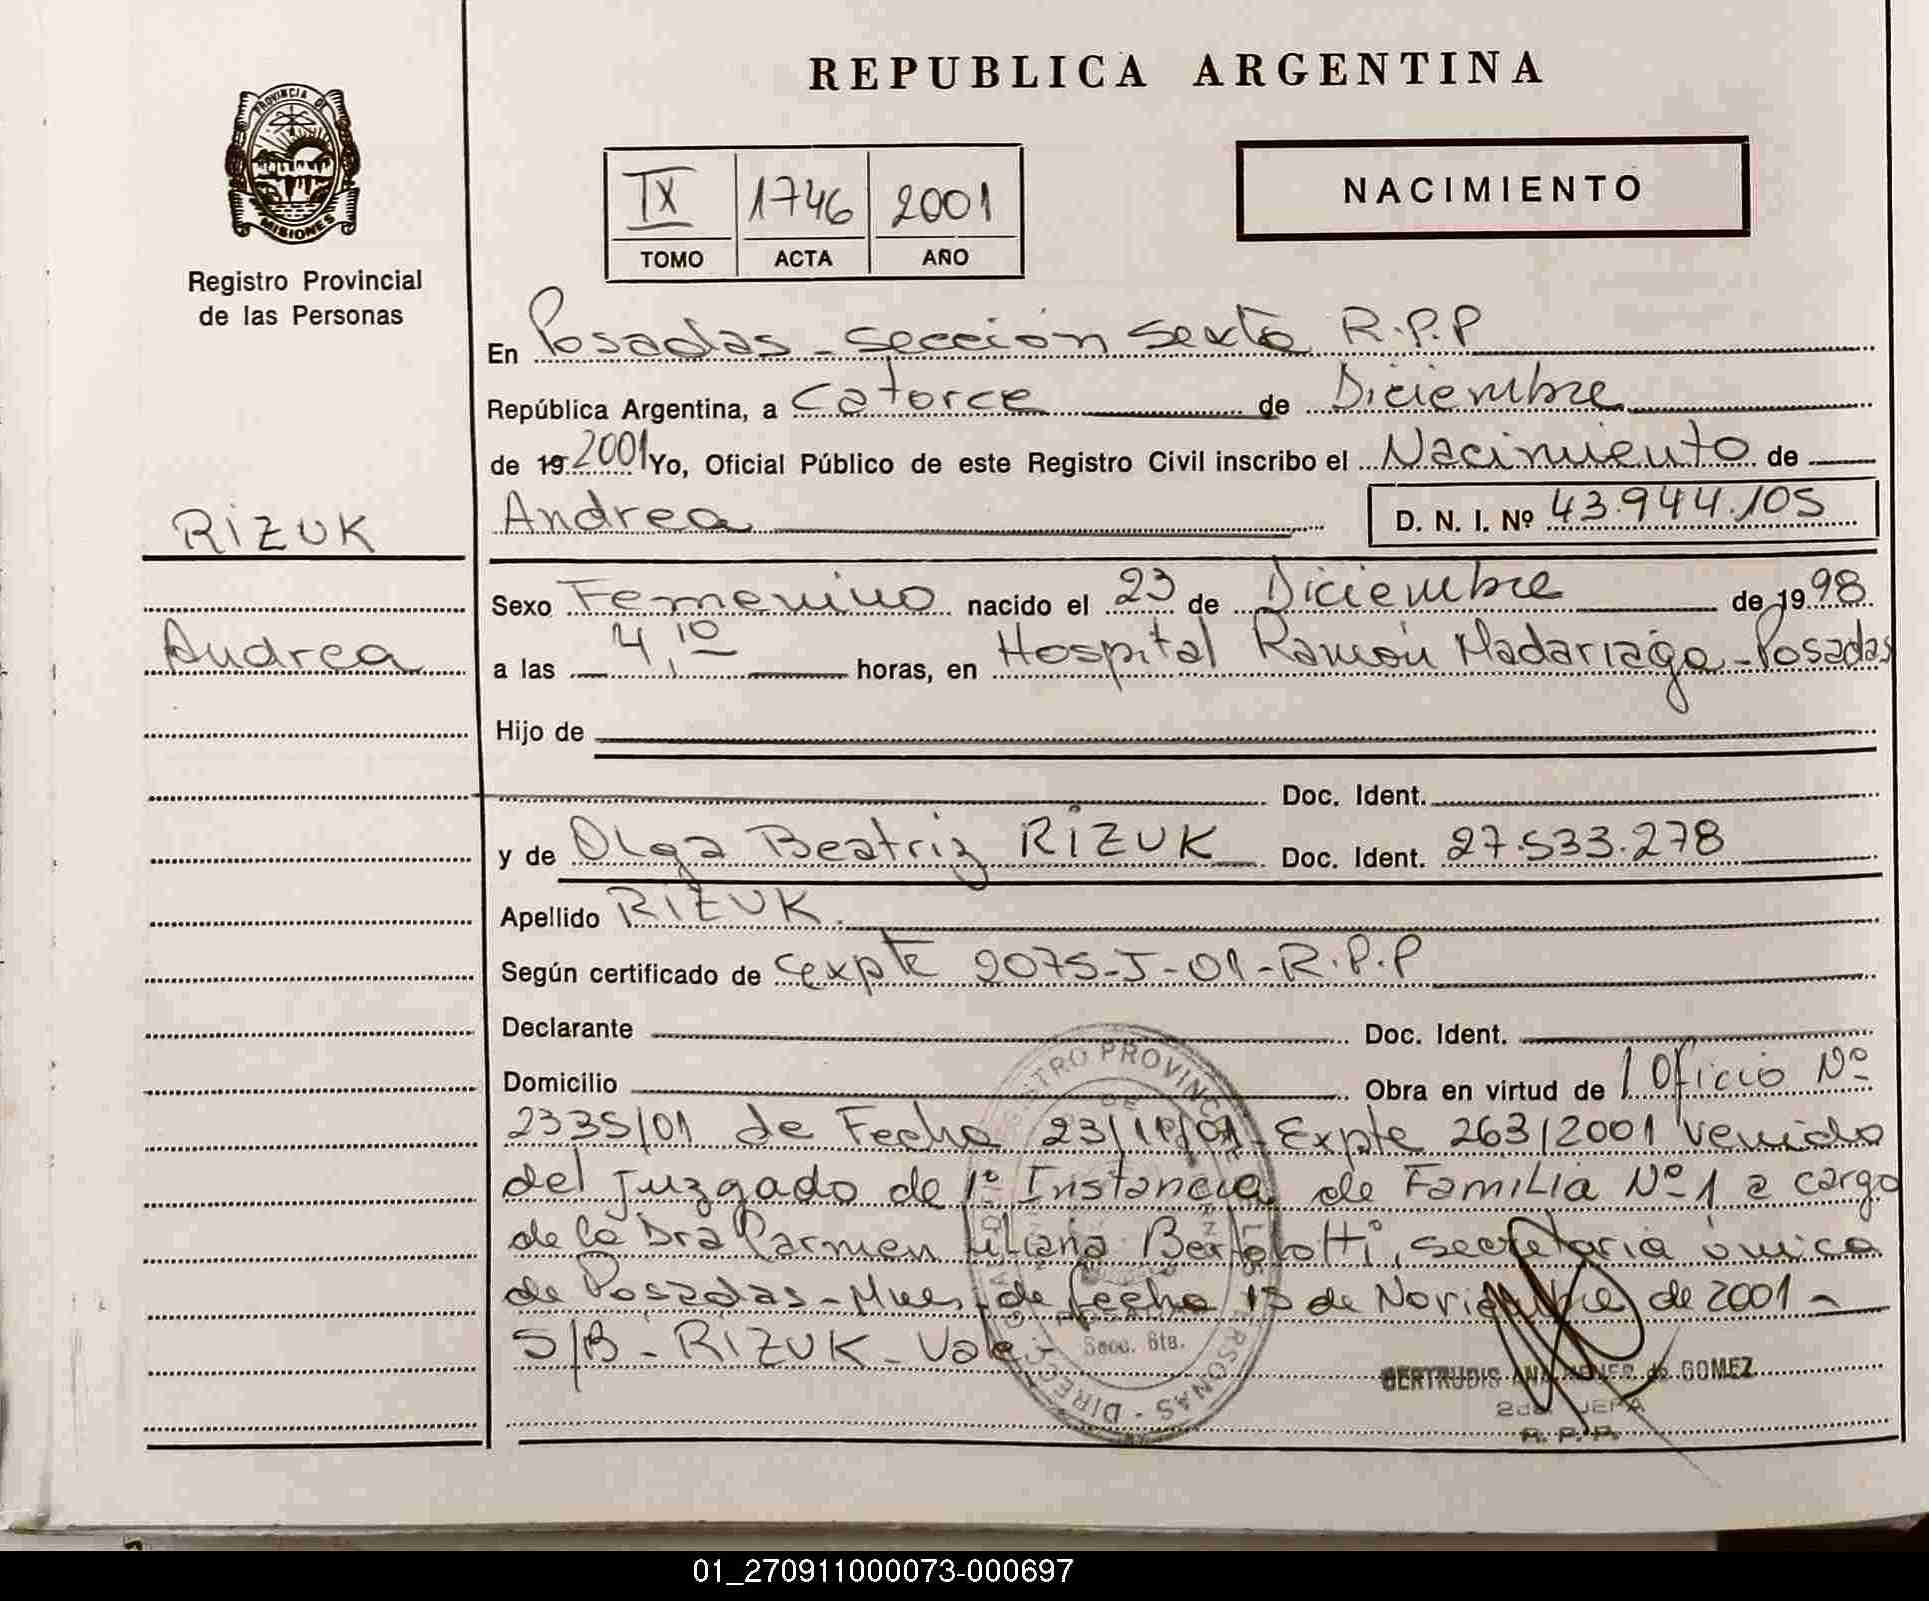 REPUBLICA ARGENTINA
PROVINCIA DE
MISIONES
Registro Provincial
de las Personas
IX 1746 2001
TOMO ACTA AÑO
NACIMIENTO
En Posadas - Sección Sexta R.P.P
República Argentina, a Catorce de Diciembre
de 19 2001 Yo, Oficial Público de este Registro Civil inscribo el Nacimiento de
Andrea D. N. I. Nº 43.944.105
RIZUK
Andrea
Sexo Femenino nacido el 23 de Diciembre de 1998
a las 4,10 horas, en Hospital Ramón Madariaga - Posadas
Hijo de
Doc. Ident.
y de Olga Beatriz RIZUK Doc. Ident. 27.533.278
Apellido RIZUK.
Según certificado de expte 2075-J-01-R.P.P
Declarante Doc. Ident.
Domicilio Obra en virtud de / Oficio Nº
2335/01 de Fecha 23/11/01 - Expte 263/2001 venido
del Juzgado de 1º Instancia de Familia Nº 1 a cargo
de la Dra Carmen Liliana Bertolotti, secretaria única
de Posadas - Mnes, de fecha 15 de Noviembre de 2001 -
S/B - RIZUK - Vale -
Secc. 6ta.
GERTRUDIS ANA de GOMEZ
2da. JEFA
R. P. P.
01_270911000073-000697